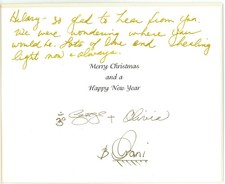 Hilary - so glad to hear from you.
We were wondering where you
would be. Lots of love and healing
light now + always.
Merry Christmas
and a
Happy New Year
George + Olivia
& Dhani